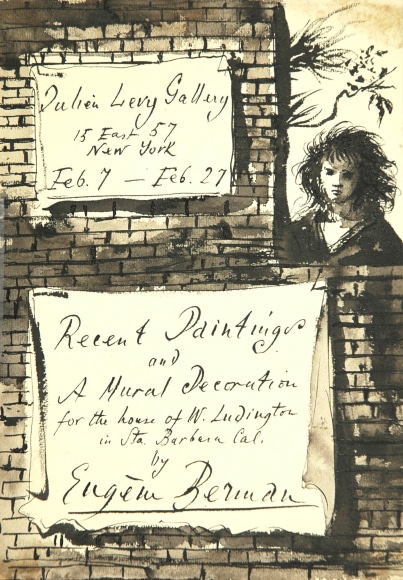 Julien Levy Gallery
15 East 57
New York
Feb. 7 — Feb. 27
Recent Paintings
and
A Mural Decoration
for the house of W. Ludington
in Sta. Barbara Cal.
by
Eugène Berman